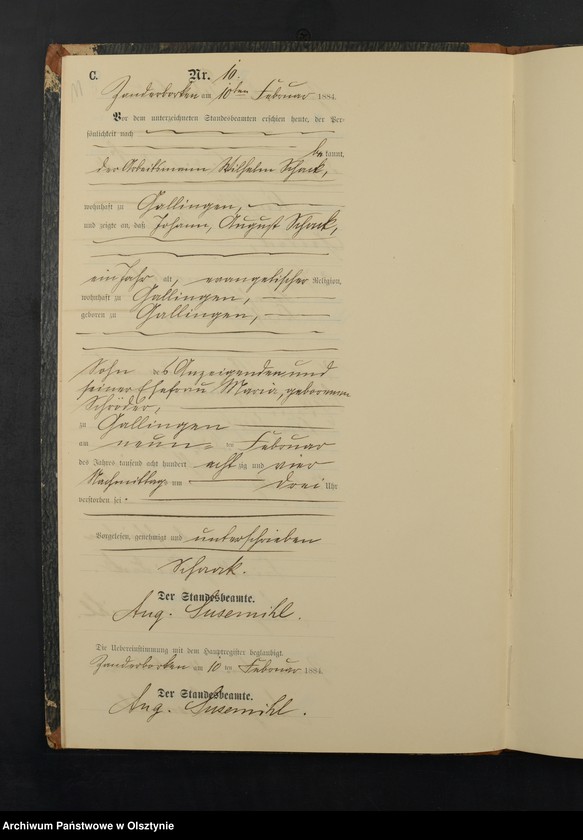 C. Nr. 10.
Zanderborken am 10ten Februar 1884.
Vor dem unterzeichneten Standesbeamten erschien heute, der Per-
sönlichkeit nach
bekannt,
der Arbeitsmann Wilhelm Schack,
wohnhaft zu Gallingen,
und zeigte an, daß Johann, August Schack,
ein Jahr alt, evangelischer Religion,
wohnhaft zu Gallingen,
geboren zu Gallingen,
Sohn des Anzeigenden und
seiner Ehefrau Maria, geborenen
Schröder,
zu Gallingen
am neun ten Februar
des Jahres tausend acht hundert achtzig und vier
Nachmittags um drei Uhr
verstorben sei.
Vorgelesen, genehmigt und unterschrieben
Schaack.
Der Standesbeamte.
Aug. Susemihl.
Die Uebereinstimmung mit dem Hauptregister beglaubigt
Zanderborken am 10 ten Februar 1884.
Der Standesbeamte.
Aug. Susemihl.
Archiwum Państwowe w Olsztynie